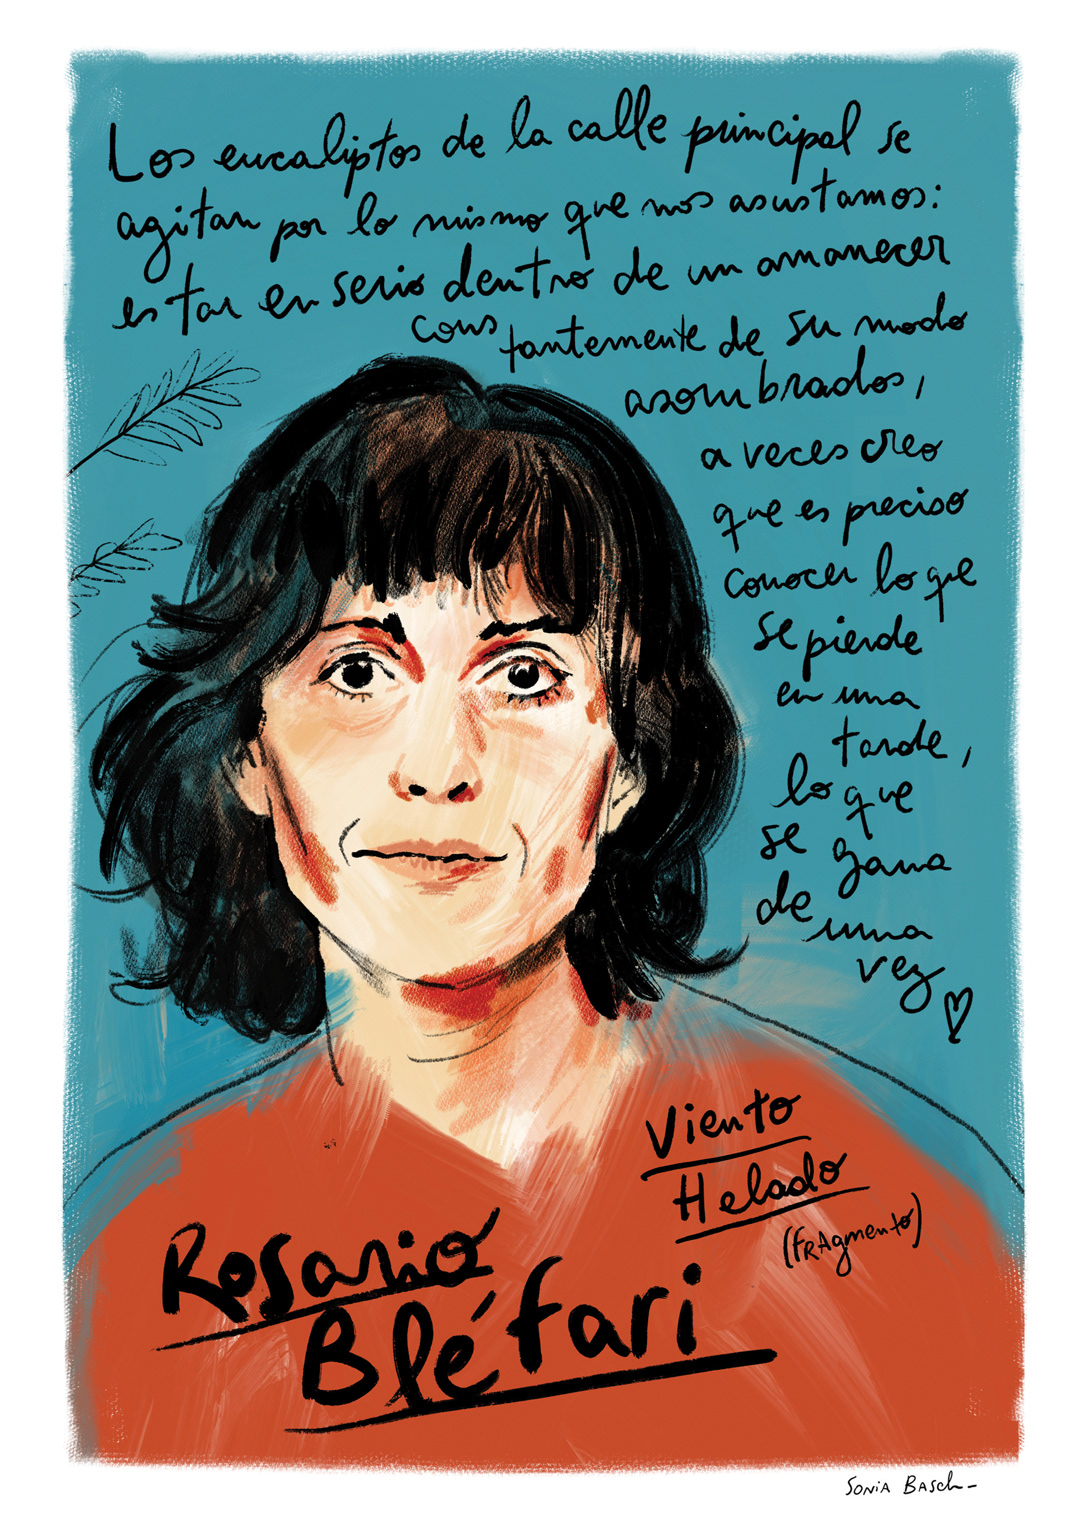 Los eucaliptos de la calle principal se
agitan por lo mismo que nos asustamos:
estar en serio dentro de un amanecer
constantemente de su modo
asombrados,
a veces creo
que es preciso
conocer lo que
se pierde
en una
tarde,
lo que
se gana
de una
vez
Viento
Helado
(FRAgmento)
Rosario
Bléfari
SONiA BASCh